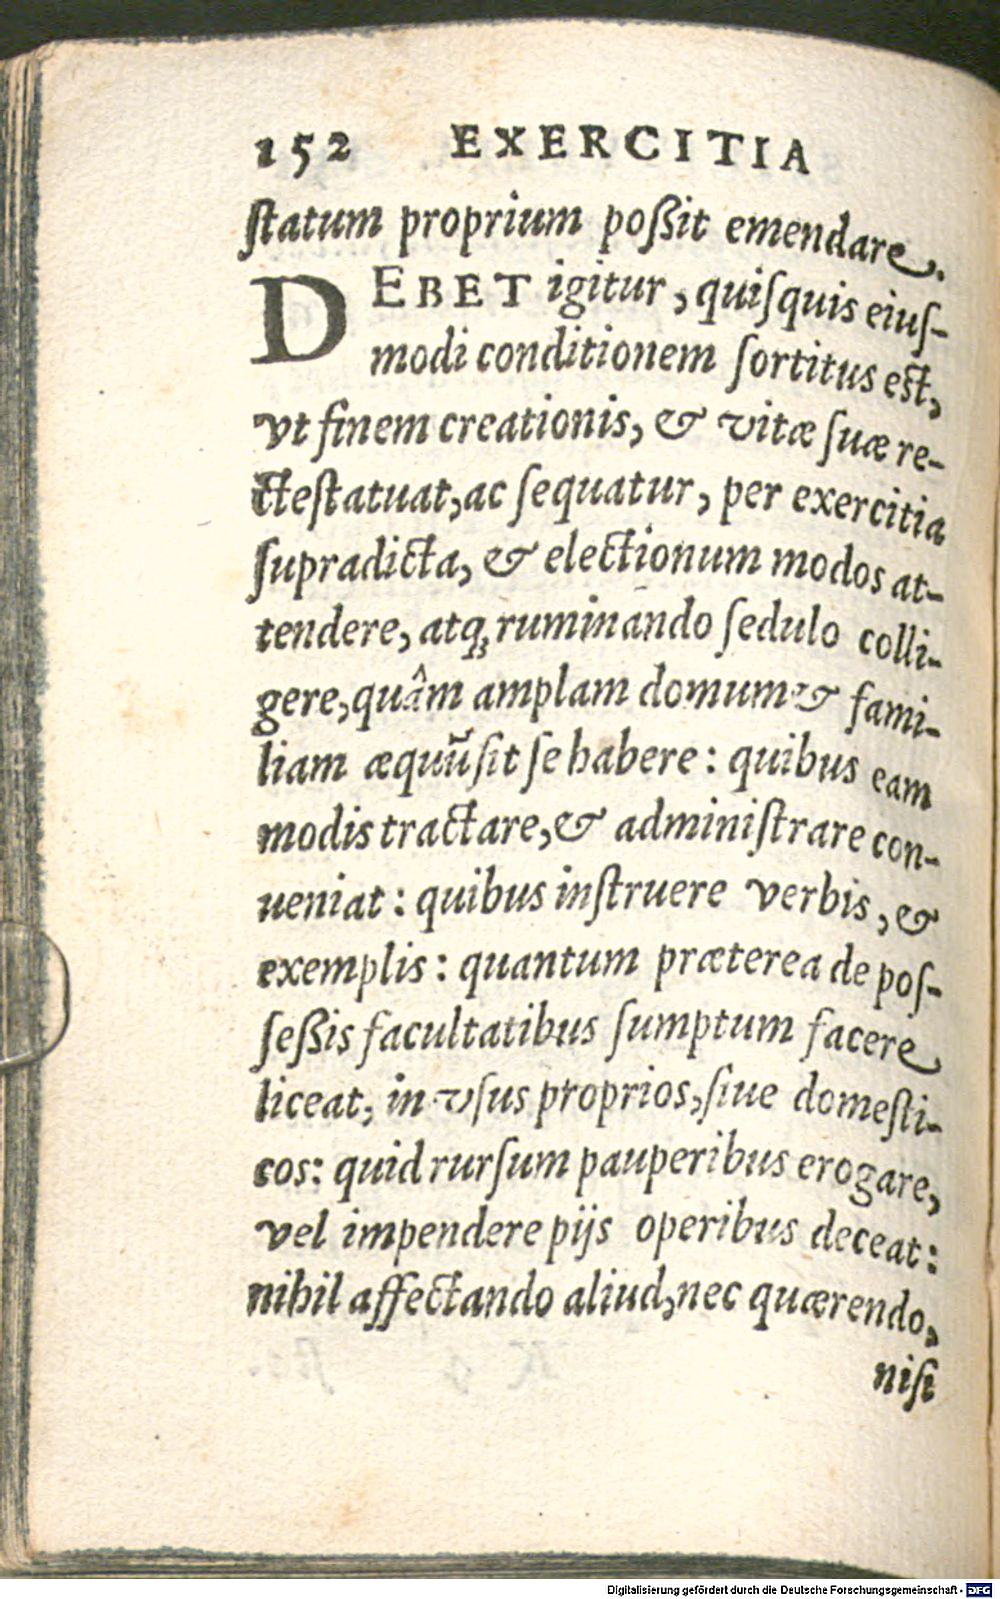 152 EXERCITIA
ſtatum proprium poßit emendare.
DEBET igitur, quiſquis eiuſ-
modi conditionem ſortitus eſt,
vt finem creationis, & vitæ ſuæ re-
cteſtatuat, ac ſequatur, per exercitia
ſupradicta, & electionum modos at-
tendere, atqꝫ ruminando ſedulo colli-
gere, quâm amplam domum & fami-
liam æquũ ſit ſe habere: quibus eam
modis tractare, & adminiſtrare con-
ueniat: quibus inſtruere verbis, &
exemplis: quantum præterea de poſ-
ſeßis facultatibus ſumptum facere
liceat, in vſus proprios, ſiue domeſti-
cos: quid rurſum pauperibus erogare,
vel impendere pijs operibus deceat:
nihil affectando aliud, nec quærendo,
niſi
Digitalisierung gefördert durch die Deutsche Forschungsgemeinschaft - DFG